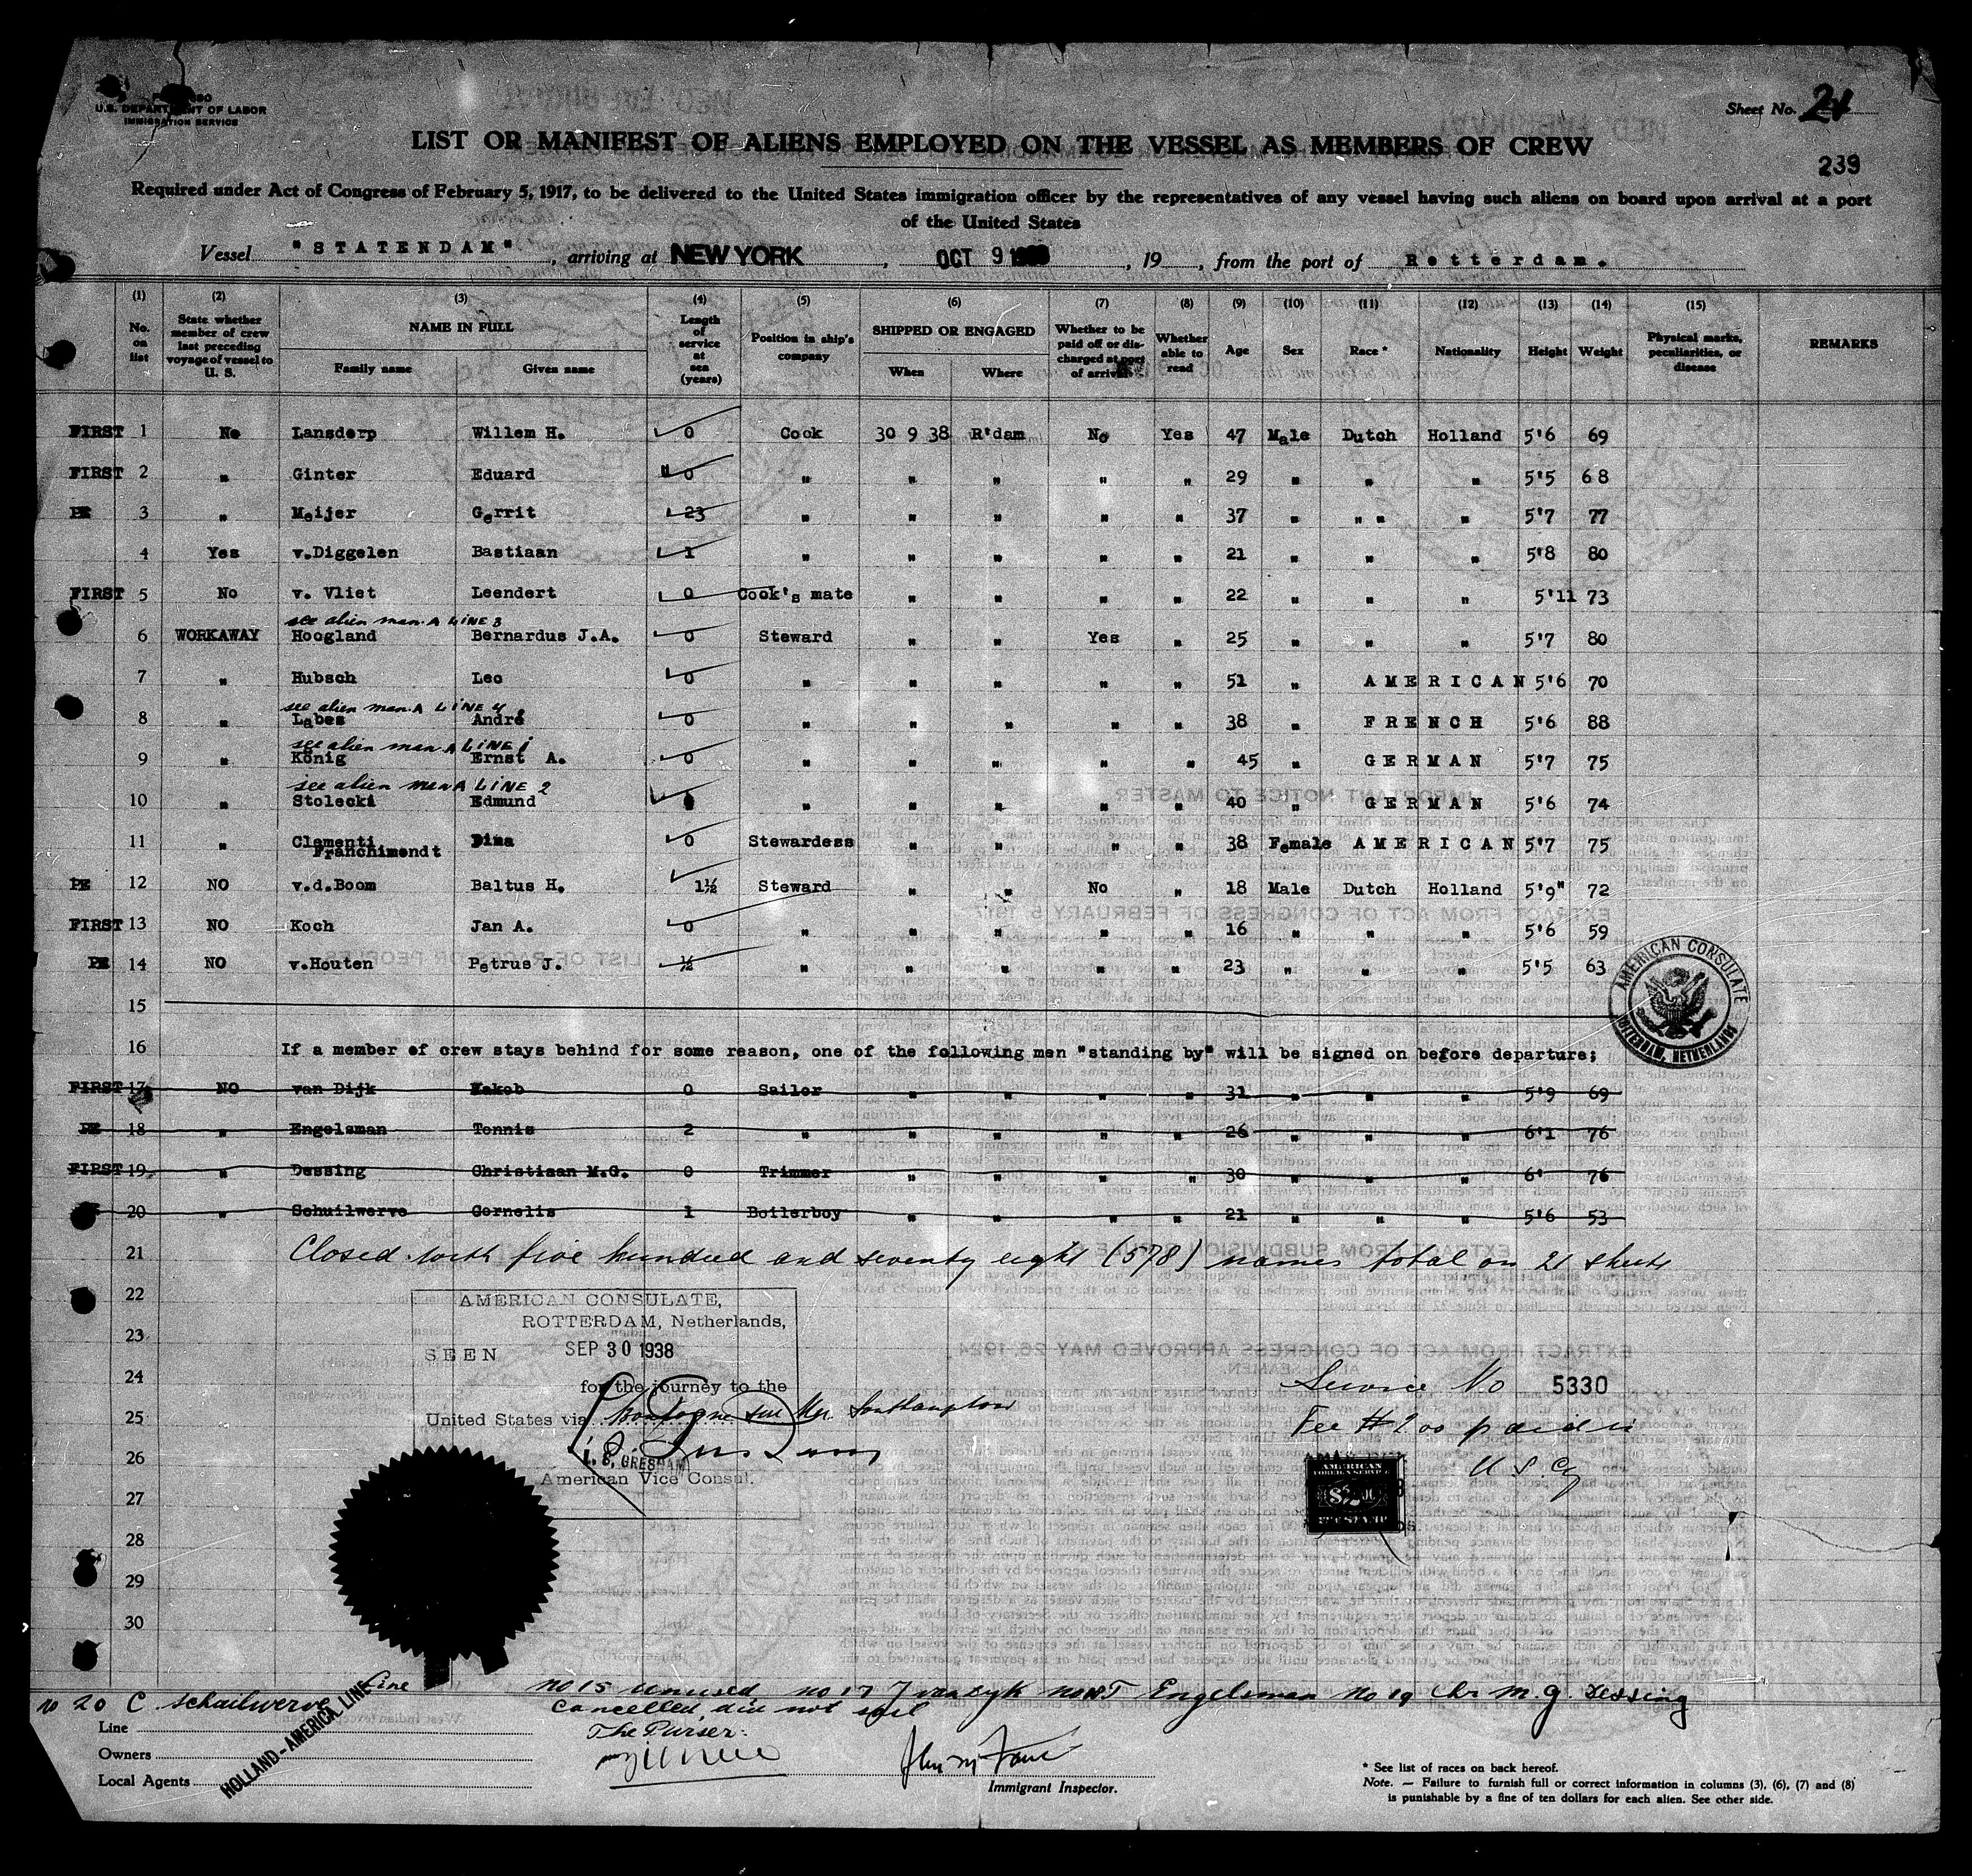 U.S. DEPARTMENT OF LABOR
IMMIGRATION SERVICE
Sheet No. 21
239
LIST OR MANIFEST OF ALIENS EMPLOYED ON THE VESSEL AS MEMBERS OF CREW
Required under Act of Congress of February 5, 1917, to be delivered to the United States immigration officer by the representatives of any vessel having such aliens on board upon arrival at a port
of the United States
Vessel "STATENDAM", arriving at NEW YORK, OCT 9, 19, from the port of Rotterdam.
(1) (2) (3) (4) (5) (6) (7) (8) (9) (10) (11) (12) (13) (14) (15)
No. on list State whether member of crew last preceding voyage of vessel to U. S. NAME IN FULL Family name Given name Length of service at sea (years) Position in ship's company SHIPPED OR ENGAGED When Where Whether to be paid off or discharged at port of arrival Whether able to read Age Sex Race * Nationality Height Weight Physical marks, peculiarities, or disease REMARKS
FIRST 1 No Lansdorp Willem H. 0 Cook 30 9 38 R'dam No Yes 47 Male Dutch Holland 5'6 69
FIRST 2 " Ginter Eduard 0 " " " " " 29 " " " 5'5 68
PE 3 " Meijer Gerrit 23 " " " " " 37 " " " " 5'7 77
4 Yes v.Diggelen Bastiaan 1 " " " " " 21 " " " 5'8 80
FIRST 5 No v. Vliet Leendert 0 Cook's mate " " " " 22 " " " 5'11 73
see alien man. A LINE 3
6 WORKAWAY Hoogland Bernardus J.A. 0 Steward " " Yes " 25 " " " 5'7 80
7 " Hubsch Leo 0 " " " " " 51 " AMERICAN 5'6 70
see alien man. A LINE 4
8 " Labes André 0 " " " " " 38 " FRENCH 5'6 88
see alien man A LINE 1
9 " König Ernst A. 0 " " " " " 45 " GERMAN 5'7 75
see alien man A LINE 2
10 " Stolecki Edmund " " " " " 40 " GERMAN 5'6 74
11 " Clementi Dina 0 Stewardess " " " " 38 Female AMERICAN 5'7 75
Franchimondt
PE 12 NO v.d.Boom Baltus H. 1½ Steward " " No " 18 Male Dutch Holland 5'9" 72
FIRST 13 NO Koch Jan A. 0 " " " " " 16 " " " 5'6 59
PE 14 NO v.Houten Petrus J. ½ " " " " " 23 " " " 5'5 63
15
AMERICAN CONSULATE
ROTTERDAM, NETHERLANDS
16 If a member of crew stays behind for some reason, one of the following men "standing by" will be signed on before departure;
FIRST 17 NO van Dijk Jakob 0 Sailor " " " " 31 " " " 5'9 69
PE 18 " Engelsman Tonnis 2 " " " " " 26 " " " 6'1 76
FIRST 19 " Dessing Christiaan M.G. 0 Trimmer " " " " 30 " " " 6' 76
20 " Schuilwerve Cornelis 1 Boilerboy " " " " 21 " " " 5'6 53
21 Closed with five hundred and seventy eight (578) names total on 21 sheets
22 AMERICAN CONSULATE,
ROTTERDAM, Netherlands,
23 SEEN SEP 30 1938
24 for the journey to the
Service No 5330
25 United States via Boulogne Sur Mer Southampton
Fee $2.00 paid
26 L. S. GRESHAM
American Vice Consul.
U S Cy
AMERICAN
FOREIGN SERVICE
$2.00
FEE STAMP
27
28
29
30
Line no 15 unused no 17 J van Dyk no 18 T Engelsman No 19 Chr M. G. Dessing
no 20 C Schailwerve Cancelled, did not sail
The Purser:
Line
Owners
Local Agents
HOLLAND-AMERICA LINE
Immigrant Inspector.
* See list of races on back hereof.
Note. — Failure to furnish full or correct information in columns (3), (6), (7) and (8)
is punishable by a fine of ten dollars for each alien. See other side.